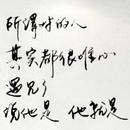 所谓对的人
其实都很难心
遇见了
说他是 他就是